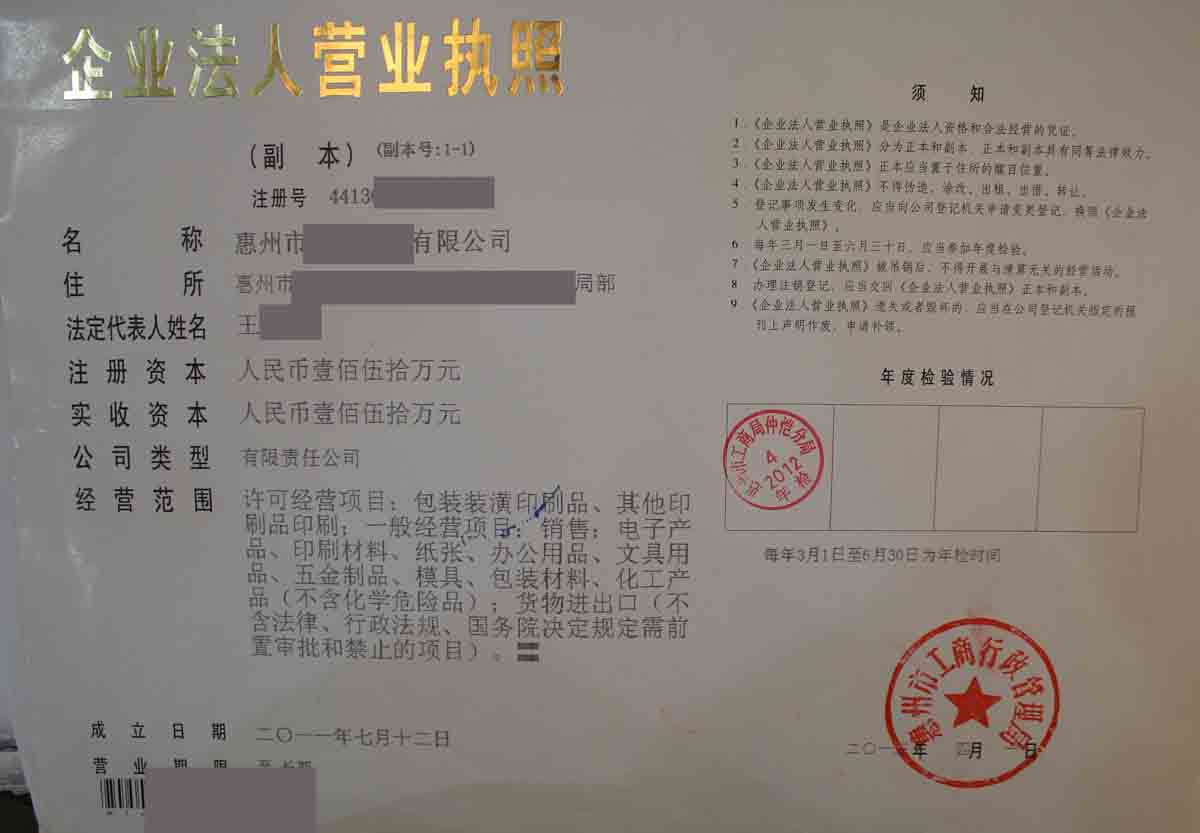 企业法人营业执照
（副 本）（副本号:1-1）
注册号 4413
名 称 惠州市 有限公司
住 所 惠州市 局部
法定代表人姓名 王
注册资本 人民币壹佰伍拾万元
实收资本 人民币壹佰伍拾万元
公司类型 有限责任公司
经营范围 许可经营项目：包装装潢印刷品、其他印
刷品印刷；一般经营项目：销售：电子产
品、印刷材料、纸张、办公用品、文具用
品、五金制品、模具、包装材料、化工产
品（不含化学危险品）；货物进出口（不
含法律、行政法规、国务院决定规定需前
置审批和禁止的项目）。
成立日期 二〇一一年七月十二日
营业期限 至长期
须 知
1．《企业法人营业执照》是企业法人资格和合法经营的凭证。
2．《企业法人营业执照》分为正本和副本，正本和副本具有同等法律效力。
3．《企业法人营业执照》正本应当置于住所的醒目位置。
4．《企业法人营业执照》不得伪造、涂改、出租、出借、转让。
5 登记事项发生变化，应当向公司登记机关申请变更登记，换领《企业法
人营业执照》。
6 每年三月一日至六月三十日，应当参加年度检验。
7 《企业法人营业执照》被吊销后，不得开展与清算无关的经营活动。
8 办理注销登记，应当交回《企业法人营业执照》正本和副本。
9 《企业法人营业执照》遗失或者毁坏的，应当在公司登记机关指定的报
刊上声明作废，申请补领。
年度检验情况
市工商局仲恺分局
4
2012
年检
每年3月1日至6月30日为年检时间
惠州市工商行政管理局
二〇一 年 四月 日